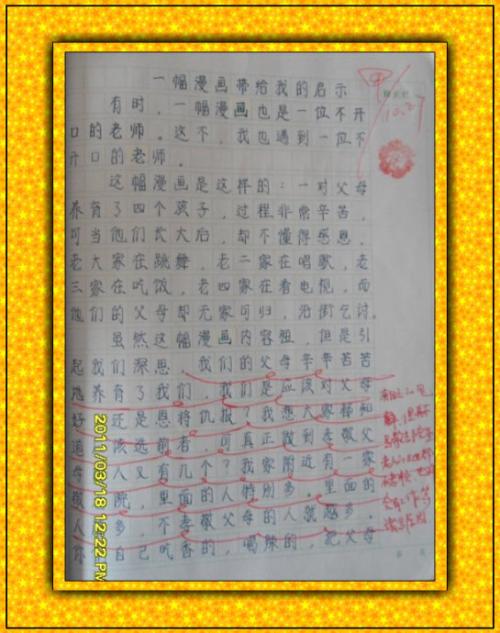 一幅漫画带给我的启示
有时，一幅漫画也是一位不开
口的老师。这不，我也遇到一位不
开口的老师。
这幅漫画是这样的：一对父母
养育了四个孩子，过程非常辛苦，
可当他们长大后，却不懂得感恩。
老大家在跳舞，老二家在唱歌，老
三家在吃饭，老四家在看电视，而
他们的父母却无家可归，沿街乞讨。
虽然这幅漫画内容短，但是引
起我们深思。我们的父母辛辛苦苦
地养育了我们，我们是应该对父母
好，还是恩将仇报？我想大家都知
道应该选前者，可真正做到孝敬父
母的人又有几个？我家附近有一家
敬人院，里面的人特别多，里面的
人多，不孝敬父母的人就越多，
你自己吃香的，喝辣的，把父母
10.27
2011/03/18 12:22 PM